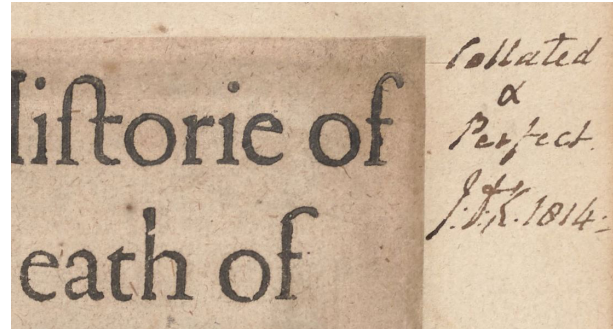 Hiſtorie of
eath of
Collated
&
Perfect.
J.P.K. 1814.